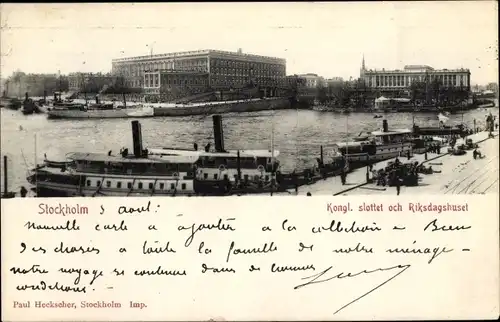 Stockholm 3 Août.
Kongl. slottet och Riksdagshuset
Nouvelle carte à ajouter à la collection. Bien
des choses à toute la famille de notre ménage,
notre voyage se continue dans de bonnes
conditions.
Paul Heckscher, Stockholm Imp.